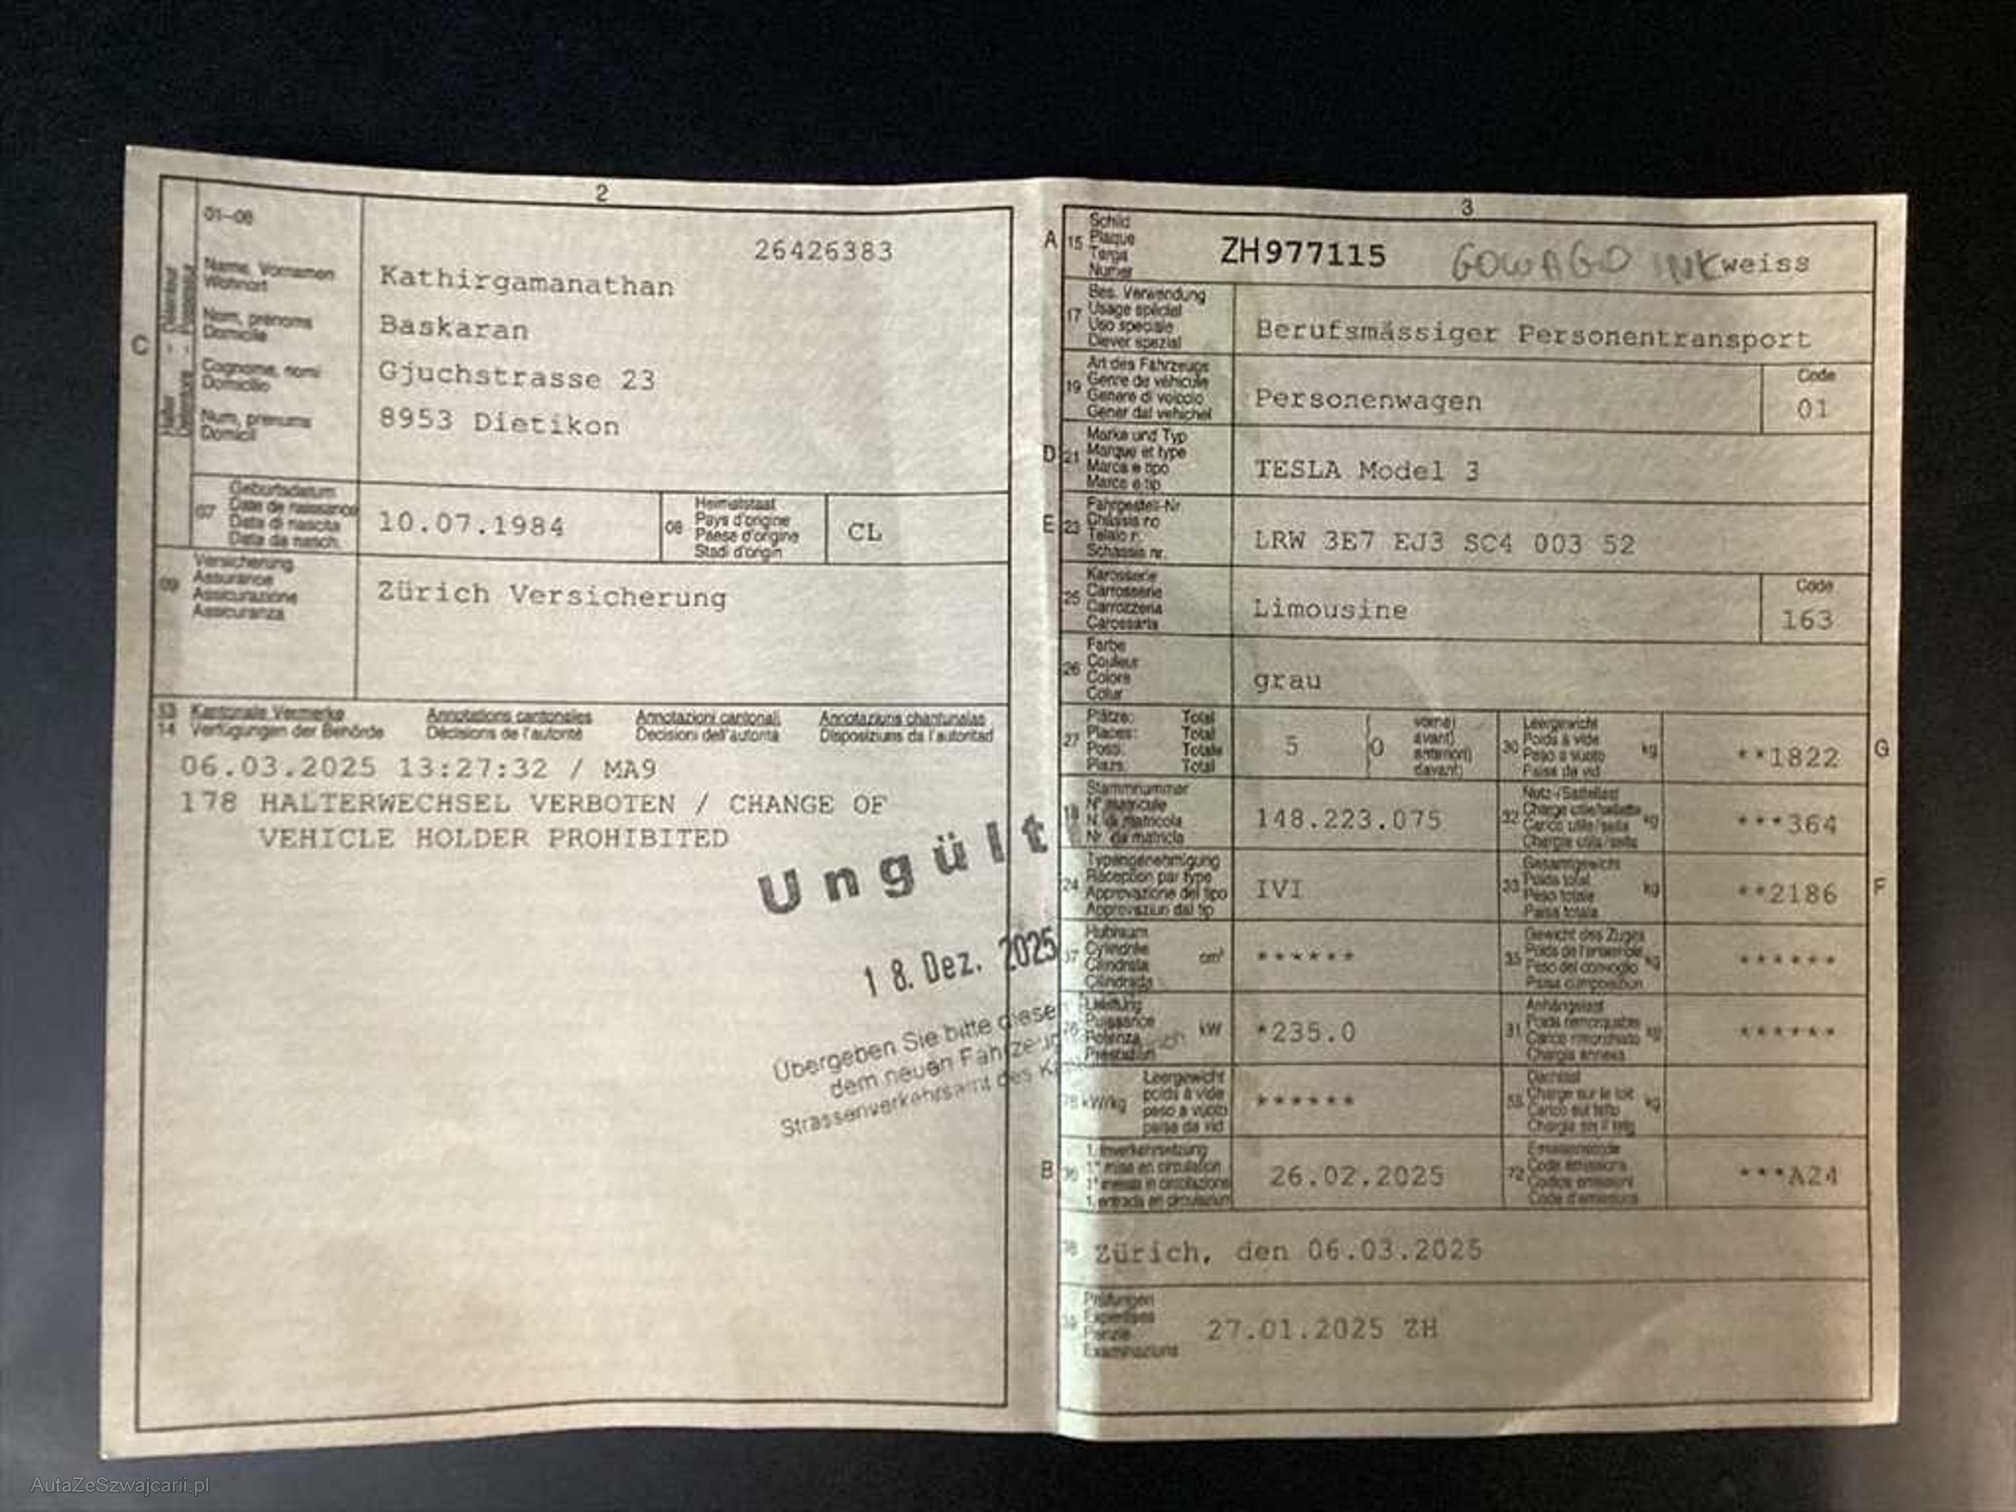 2
01-06
26426383
Name, Vornamen
Wohnort
Nom, prénoms
Domicile
Cognome, nomi
Domicilio
Num, prenums
Domicil
C
Kathirgamanathan
Baskaran
Gjuchstrasse 23
8953 Dietikon
07
Geburtsdatum
Date de naissance
Data di nascita
Data da nasch.
10.07.1984
08
Heimatstaat
Pays d'origine
Paese d'origine
Stadi d'origin
CL
09
Versicherung
Assurance
Assicurazione
Assicuranza
Zürich Versicherung
13 Kantonale Vermerke Annotations cantonales Annotazioni cantonali Annotaziuns chantunalas
14 Verfügungen der Behörde Décisions de l'autorité Decisioni dell'autorità Disposiziuns da l'autoritad
06.03.2025 13:27:32 / MA9
178 HALTERWECHSEL VERBOTEN / CHANGE OF
VEHICLE HOLDER PROHIBITED
Ungült
18. Dez. 2025
Übergeben Sie bitte diesen
dem neuen Fahrzeug
Strassenverkehrsamt des K
3
A 15
Schild
Plaque
Targa
Numer
ZH977115 GOWAGO INK weiss
17
Bes. Verwendung
Usage spécial
Uso speciale
Diever spezial
Berufsmässiger Personentransport
19
Art des Fahrzeugs
Genre de véhicule
Genere di veicolo
Gener dal vehichel
Personenwagen
Code
01
D 21
Marke und Typ
Marque et type
Marca e tipo
Marca e tip
TESLA Model 3
E 23
Fahrgestell-Nr
Châssis no
Telaio n.
Schassis nr.
LRW 3E7 EJ3 SC4 003 52
25
Karosserie
Carrosserie
Carrozzeria
Carossaria
Limousine
Code
163
26
Farbe
Couleur
Colore
Colur
grau
27
Plätze: Total
Places: Total
Posti: Totale
Plazs: Total
5 (0
vorne)
avant)
anteriori)
davant)
30
Leergewicht
Poids à vide
Peso a vuoto
Paisa da vid
kg
**1822
G
18
Stammnummer
N° matricule
N. di matricola
Nr. da matricla
148.223.075
32
Nutz-/Sattellast
Charge utile/sellette
Carico utile/sella
Chargia utila/sella
kg
***364
24
Typengenehmigung
Réception par type
Approvazione del tipo
Approvaziun dal tip
IVI
33
Gesamtgewicht
Poids total
Peso totale
Paisa totala
kg
**2186
F
37
Hubraum
Cylindrée
Cilindrata
Cilindrada
cm³
******
35
Gewicht des Zuges
Poids de l'ensemble
Peso del convoglio
Paisa cumposiziun
kg
******
76
Leistung
Puissance
Potenza
Prestaziun
kW
*235.0
31
Anhängelast
Poids remorquable
Carico rimorchiato
Chargia annexa
kg
******
78 kW/kg
Leergewicht
poids à vide
peso a vuoto
paisa da vid
******
55
Dachlast
Charge sur le toit
Carico sul tetto
Chargia sin il tetg
kg
B 36
1. Inverkehrsetzung
1re mise en circulation
1a messa in circolazione
1. entrada en circulaziun
26.02.2025
72
Emissionscode
Code émissions
Codice emissioni
Code d'emissiuns
***A24
38
Zürich, den 06.03.2025
39
Prüfungen
Expertises
Perizie
Examinaziuns
27.01.2025 ZH
AutaZeSzwajcarii.pl